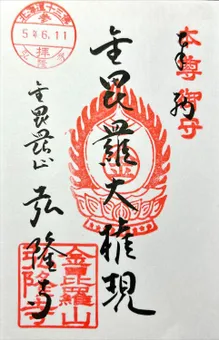 奉拝
本尊御守
金毘羅大権現
金毘羅山
弘隆寺
5年6.11
参拝
金毘羅山
弘隆寺